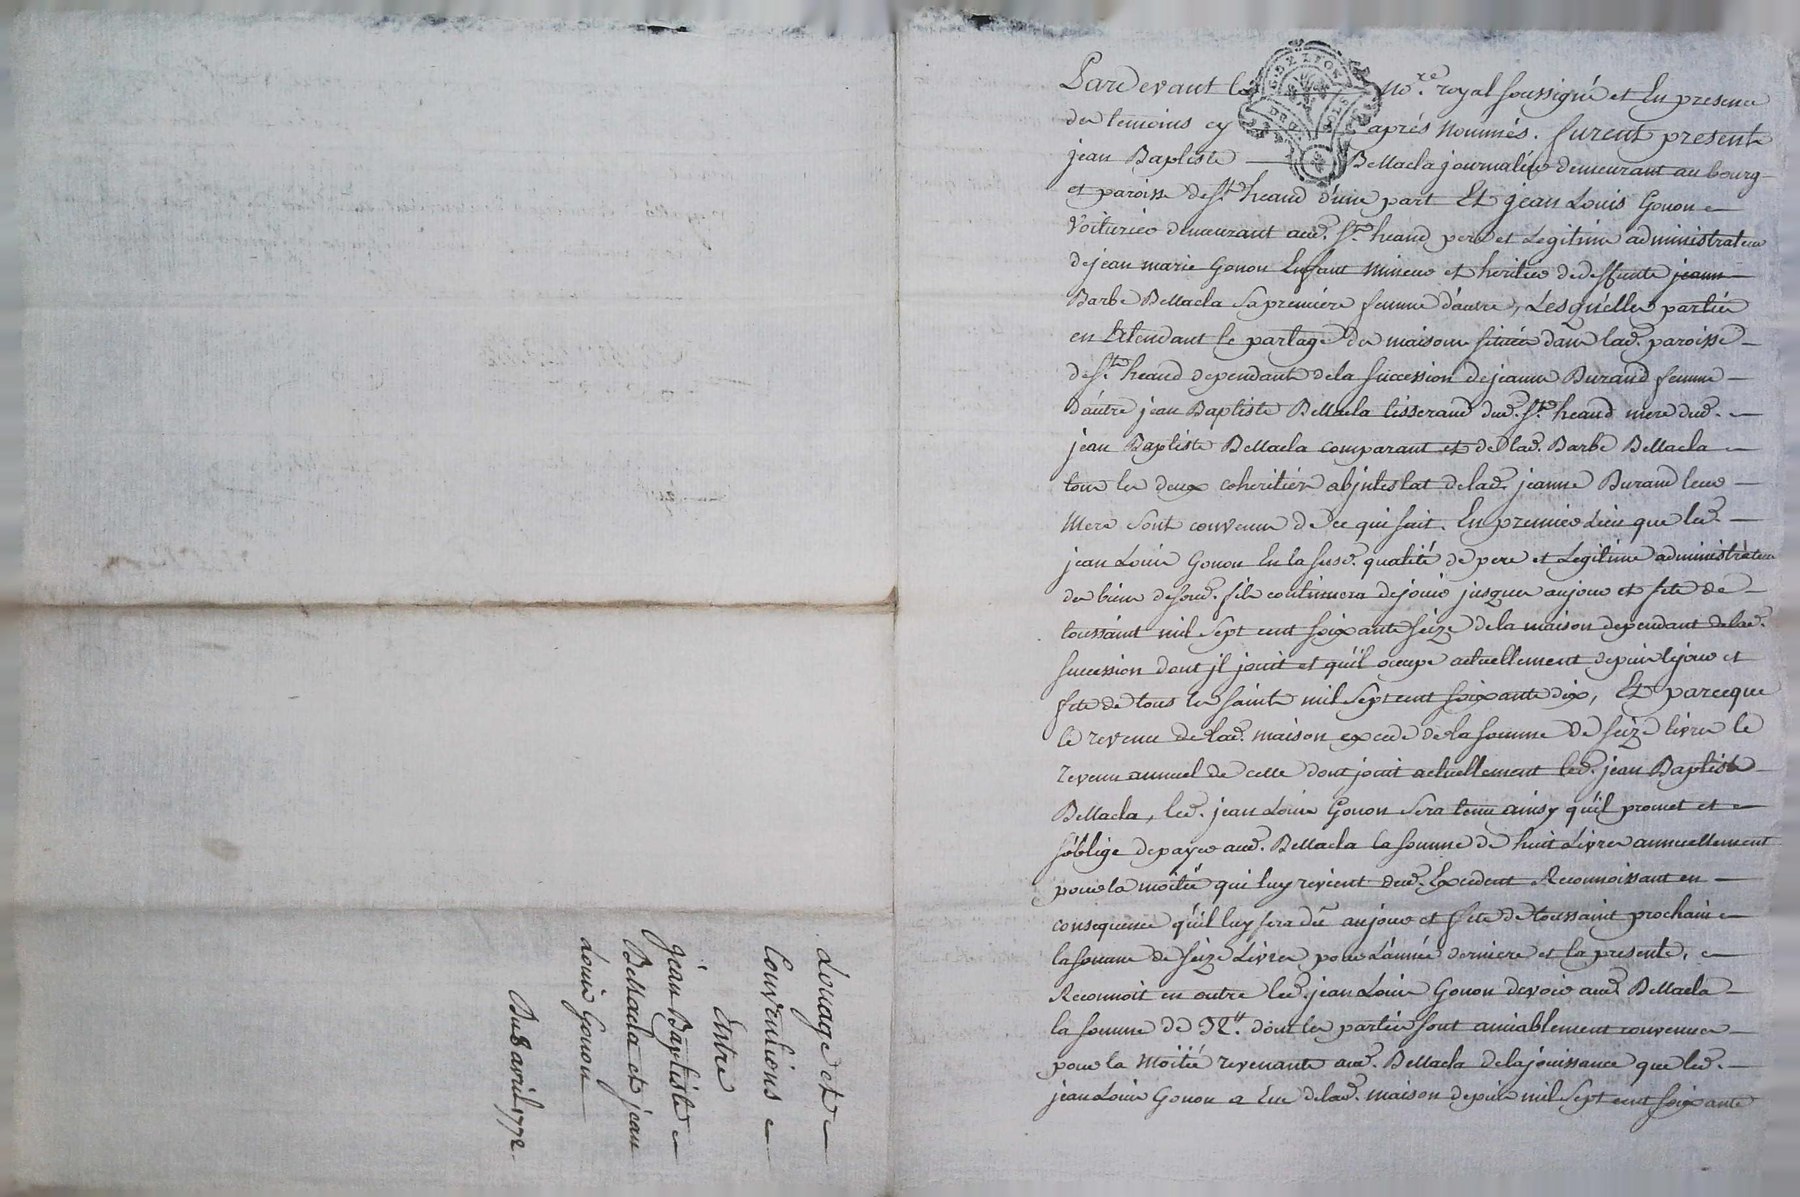 Pardevant le no.re royal soussigné et En presence
des temoins cy après nommés. furent presents
jean Baptiste Bellacla journalier demeurant au bourg
et paroisse de St. heand d'une part Et jean Louis Gonon
Voiturier demeurant aud. St. heand pere et Legitime administrateur
de jean marie Gonon Enfant mineur et heritier de deffunte jeanne
Barbe Bellacla sa premiére femme d'autre, Lesquelles parties
en Attendant le partage des maisons situées dans lad. paroisse
de St. heand dependants de la succession de jeanne Durand femme
d'autre jean Baptiste Bellacla tisserand dud. St. heand mere dud.
jean Baptiste Bellacla comparant et de lad. Barbe Bellacla
tous les deux coheritiers abjntestat de lad. jeanne Durand leur
Mere sont convenus de ce qui suit. En premier Lieu que led.
jean Louis Gonon En la susd. qualité de pere et Legitime administrateur
des biens de sond. fils continuera de jouir jusques au jour et fete de
toussaint mil sept cent soixante seize de la maison dependant de lad.
succession dont jl jouit et qu'il occupe actuellement depuis le jour et
fete de tous les saints mil sept cent soixante dix, Et parceque
le revenu de lad. maison excede de la somme de seize livres le
revenu annuel de celle dont jouit actuellement led. jean Baptiste
Bellacla, led. jean Louis Gonon sera tenu ainsy qu'il promet et
s'oblige de payer aud. Bellacla la somme de huit Livres annuellement
pour la moitié qui luy revient dud. Excedent Reconnoissant en
consequence qu'il luy sera dû au jour et fete de toussaint prochain
la somme de seize Livres pour l'année derniere et la presente,
Reconnoit en outre led. jean Louis Gonon devoir aud. Bellacla
la somme de dont les parties sont amiablement convenues
pour la Moitié revenante aud. Bellacla de la jouissance que led.
jean Louis Gonon a Eue de lad. maison depuis mil sept cent soixante
Louage et
Conventions
Entre
jean Baptiste
Bellacla et jean
Louis Gonon
Du 8 avril 1772